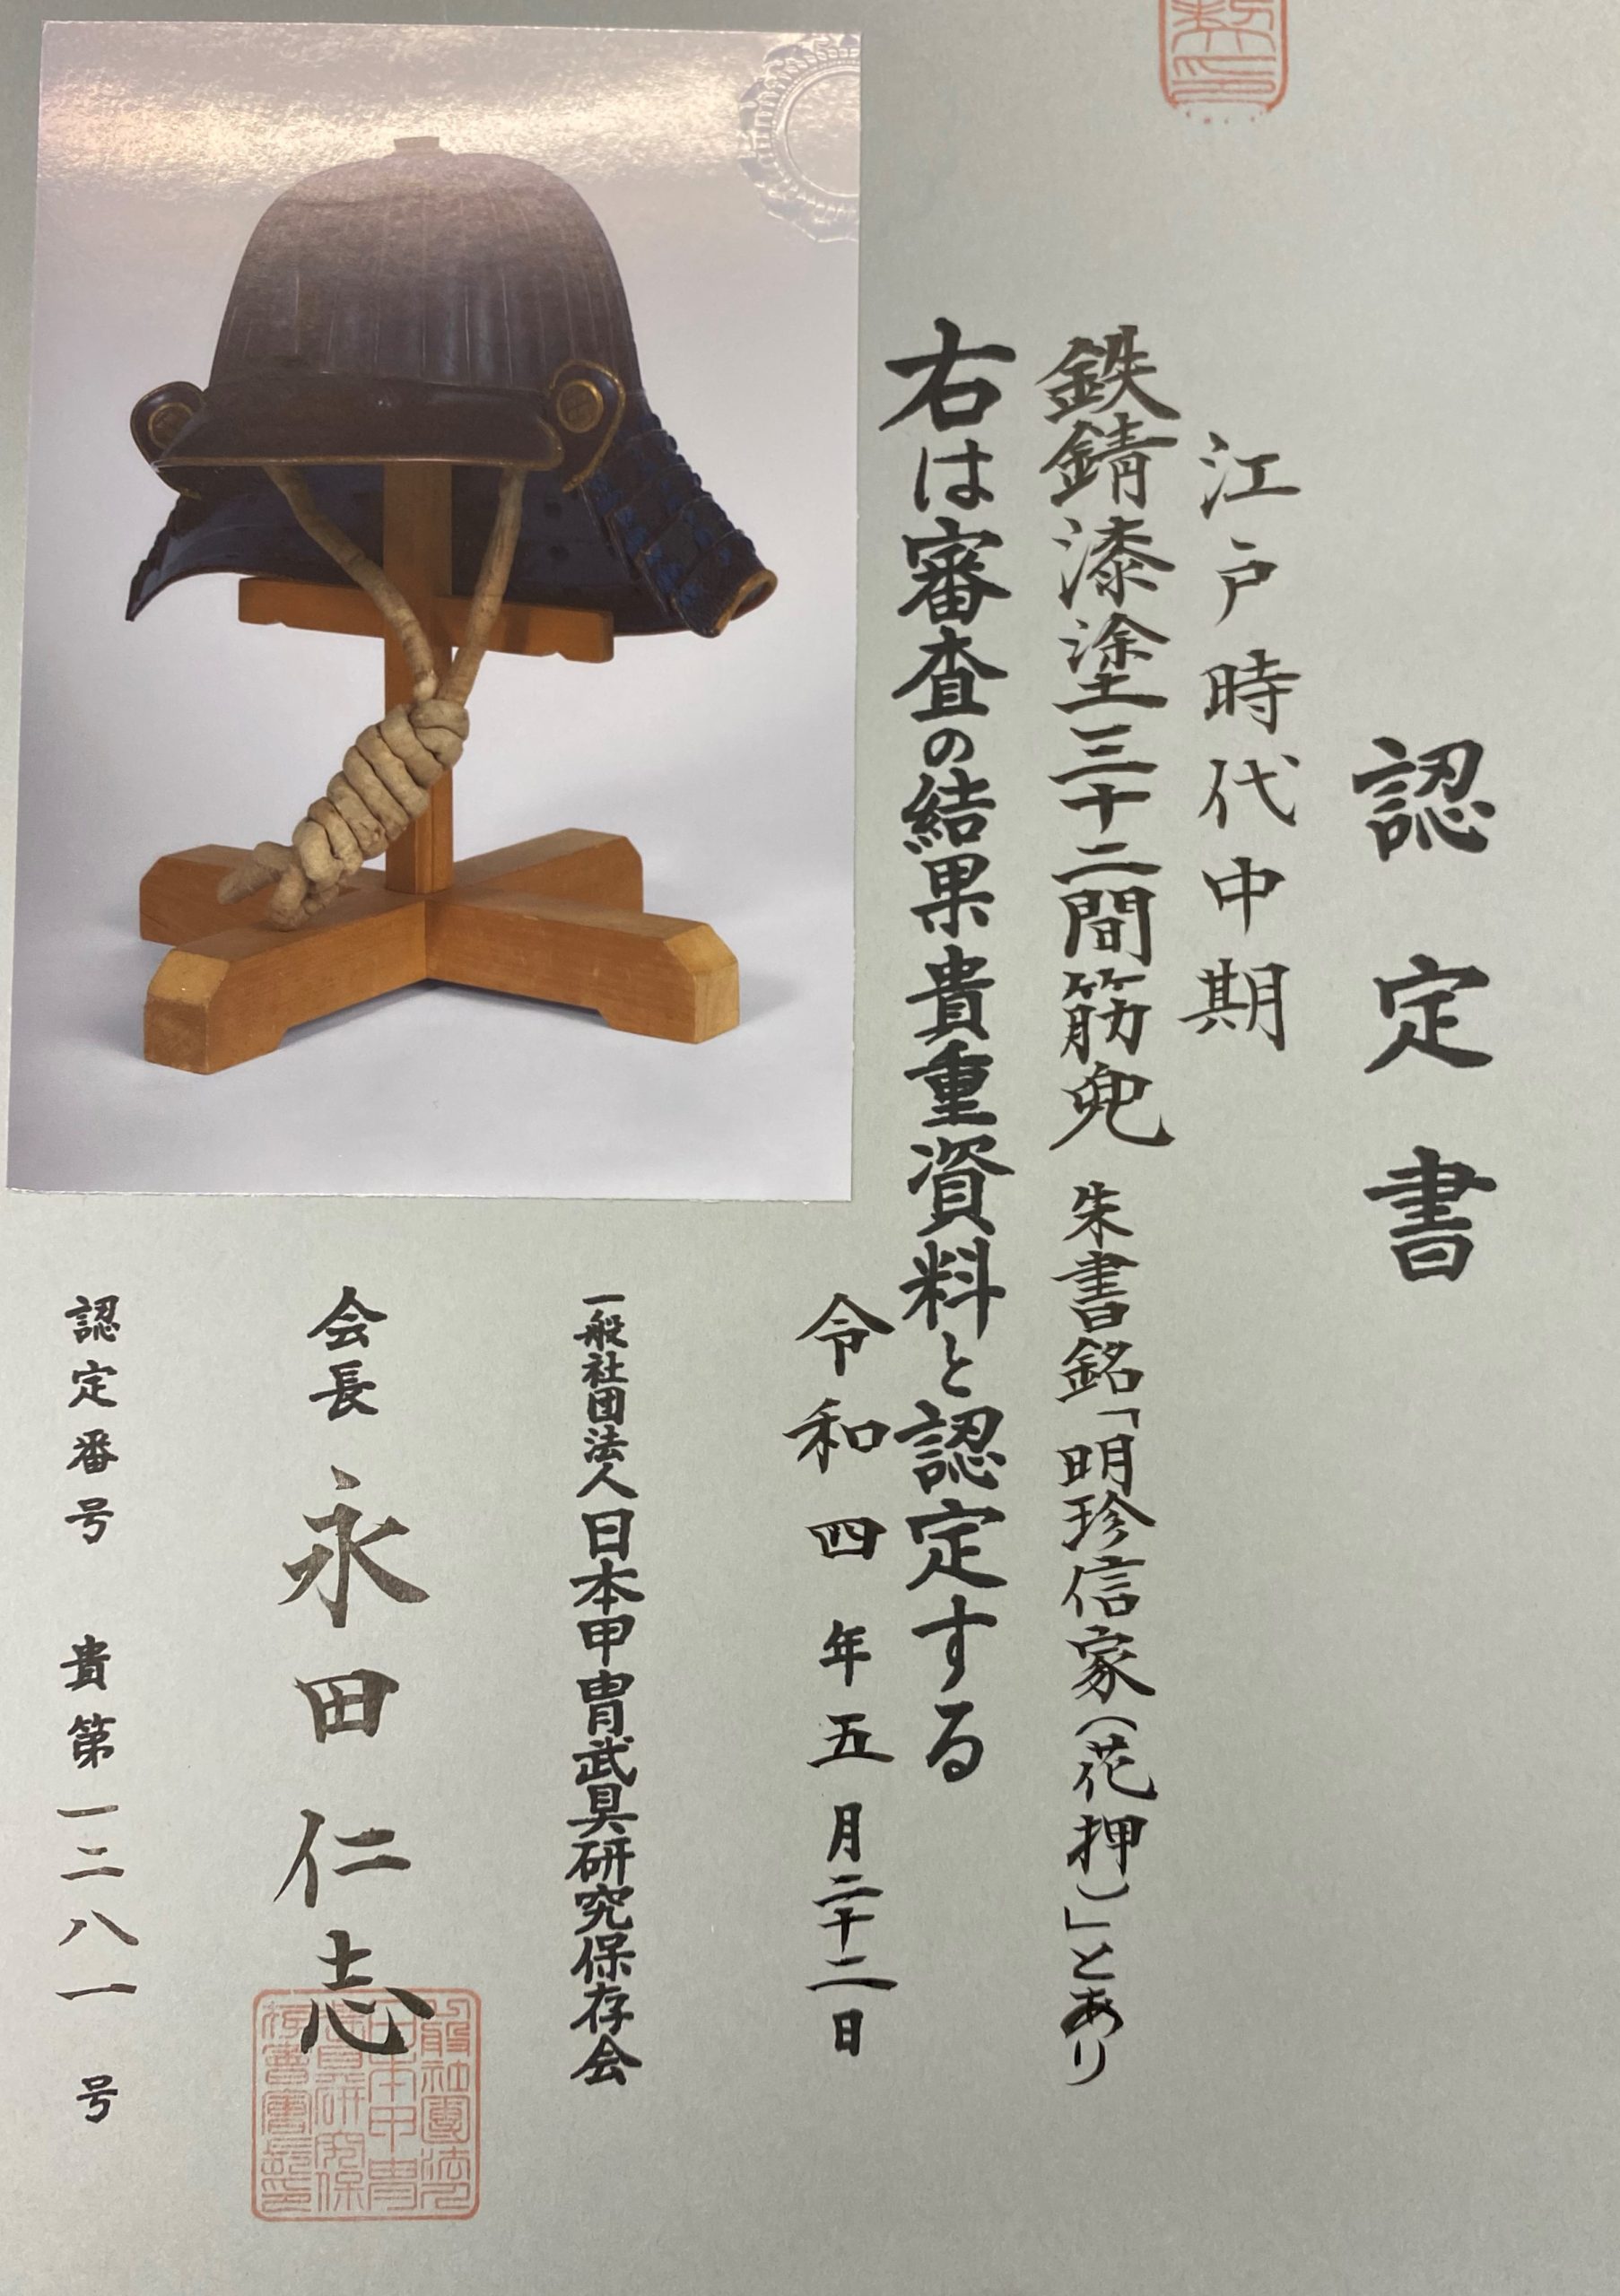 認定書
江戸時代中期
鉄錆漆塗三十二間筋兜 朱書銘「明珍信家(花押)」とあり
右は審査の結果貴重資料と認定する
令和四年五月二十二日
一般社団法人日本甲冑武具研究保存会
会長 永田仁志
認定番号 貴第一二八一号